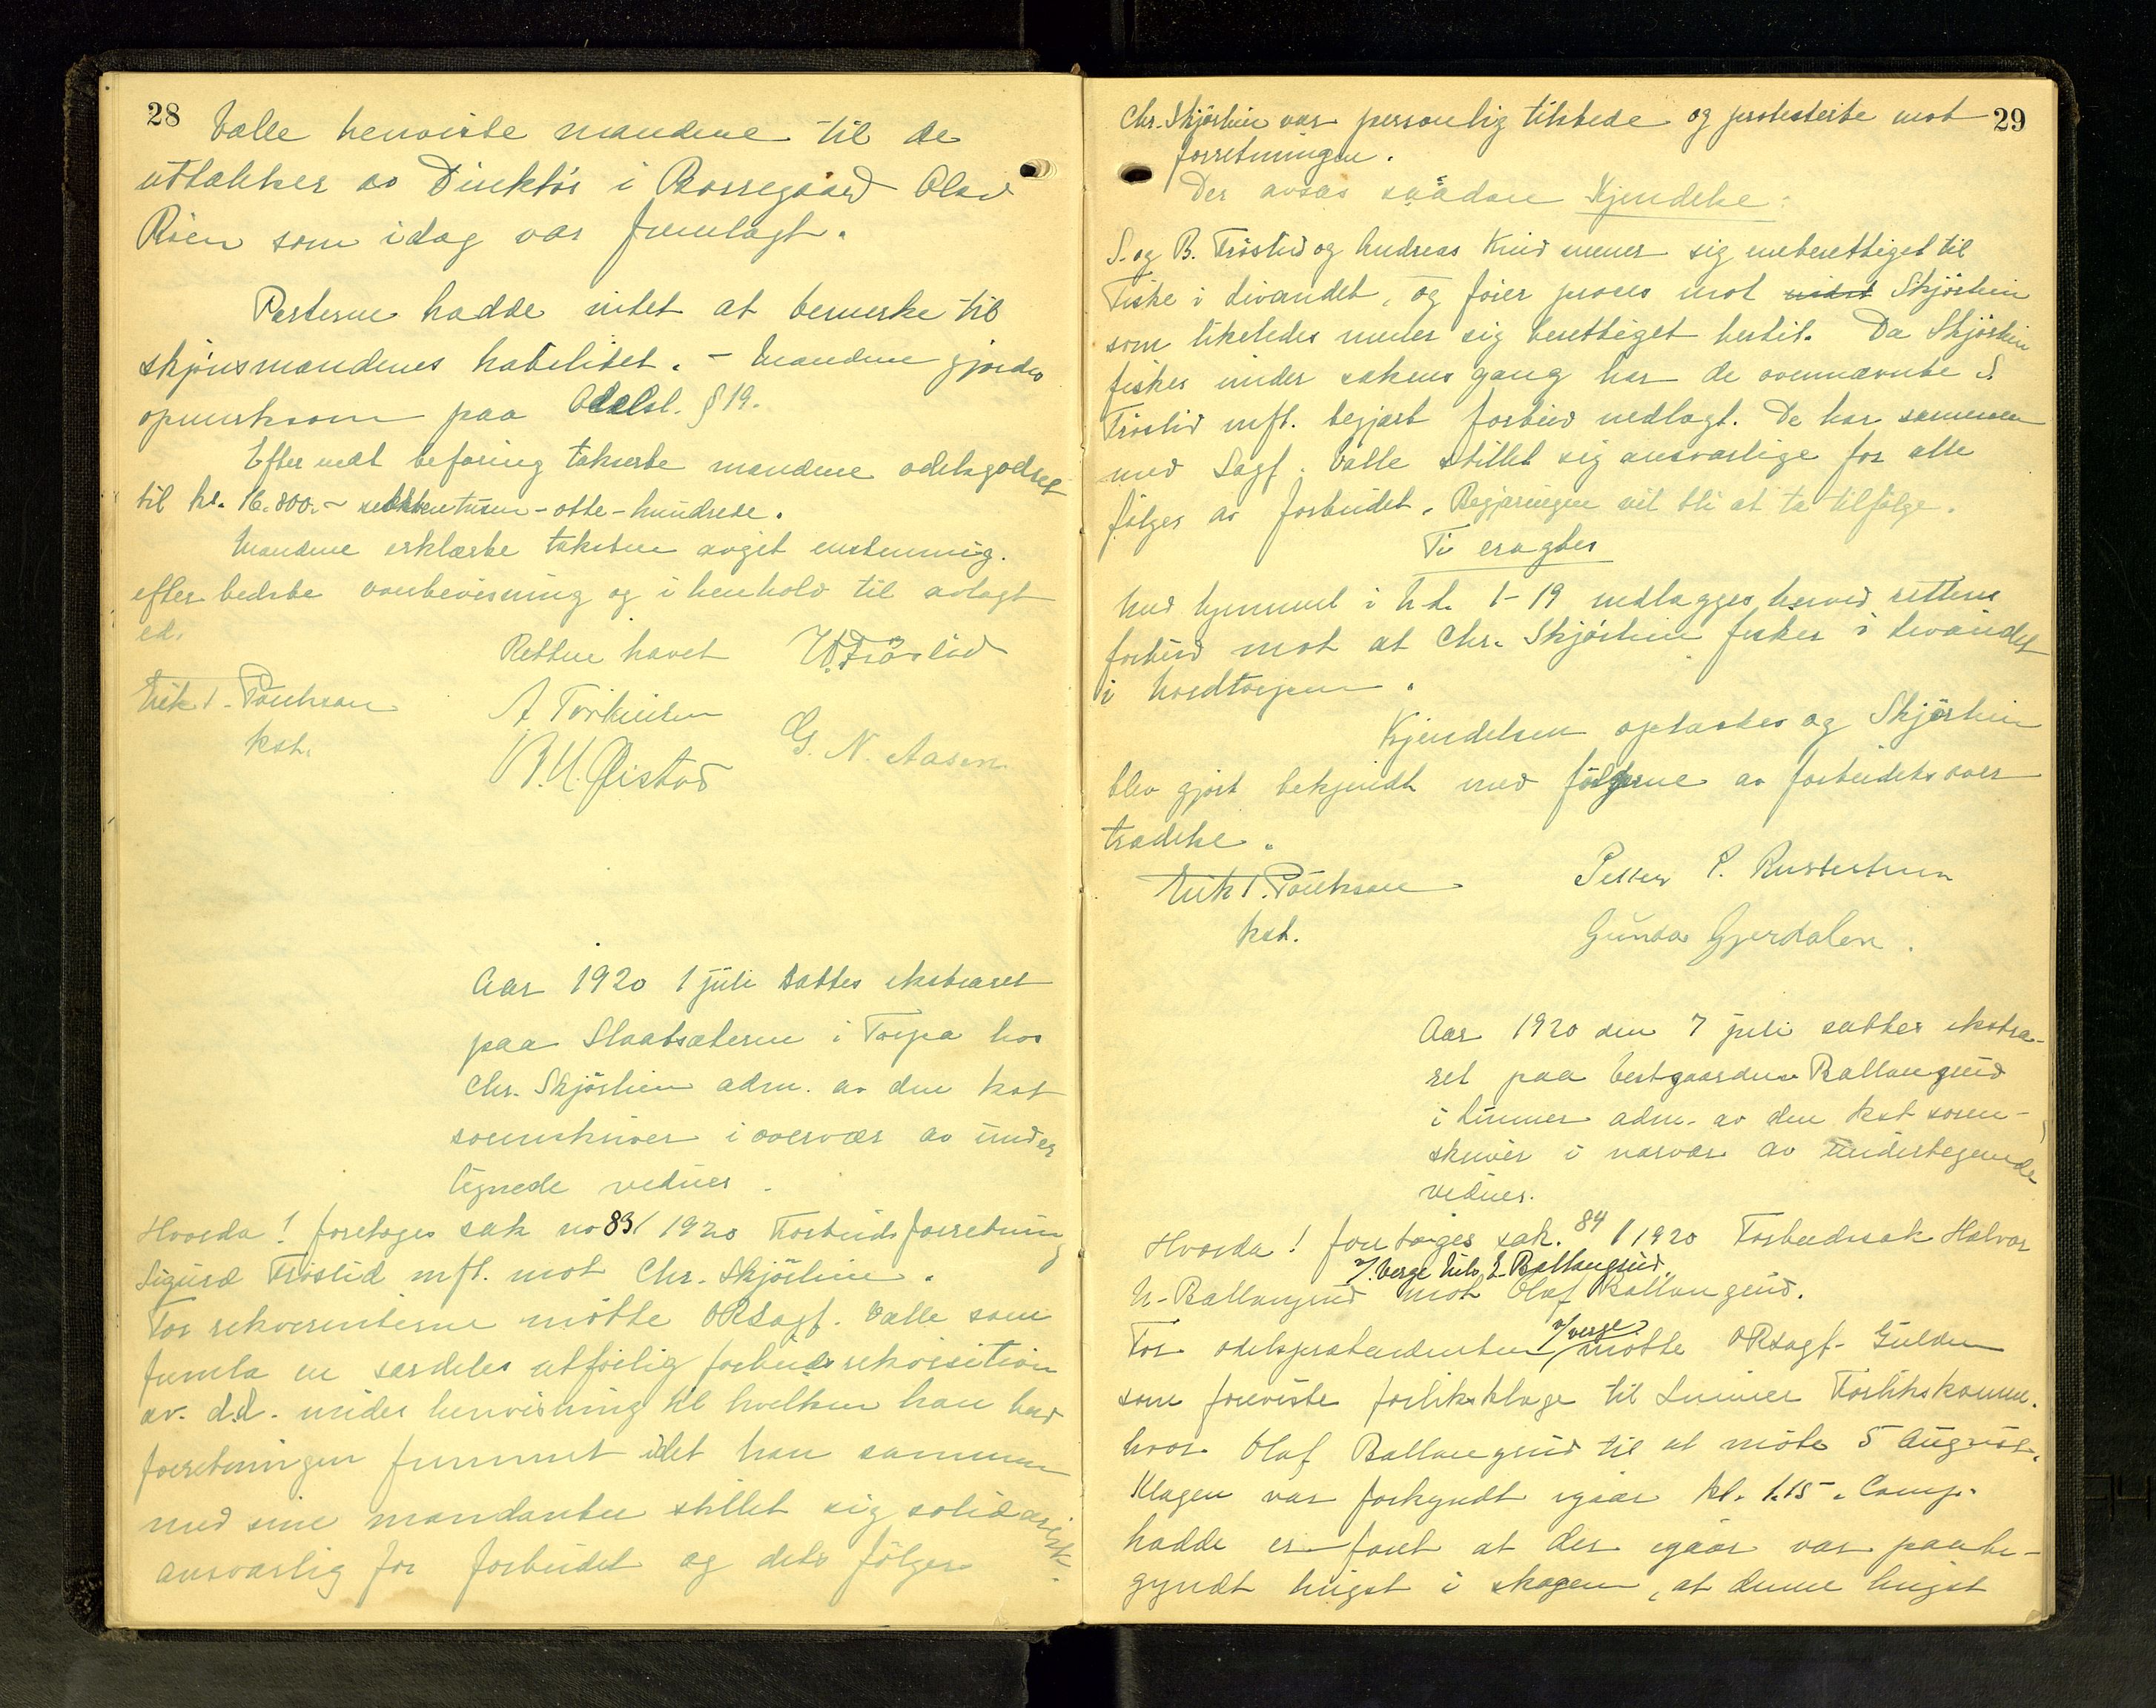 28
Valle henviste mændene til de
uttalelser av Direktør i Borregaard Olav
Röen som idag var fremlagt.
Parterne hadde intet at bemerke til
skjönsmændenes habilitet. - Mændene gjordes
opmerksom paa Odelsl. § 19.
Efter endt befaring takserte mændene odelsgodset
til kr. 16.800.- seksten tusen-otte-hundrede.
Mændene erklærte taksten avgit enstemmig.
efter bedste overbevisning og i henhold til avlagt
ed.
Retten hævet
Erik T. Poulsson
kst.
A Torkilsen
G. N. Aasen
Aar 1920 1 juli sattes ekstraret
paa Slaatsæteren i Torpa hos
Chr. Skjöslien adm. av den kst
sorenskriver i overvær av under
tegnede vidner.
Hvorda! foretoges sak no 83/1920 Forbudsforretning
Sigurd Fröslid mfl. mot Chr. Skjöslien.
For rekvirenterne mötte ORSagf. Valle som
fremla en særdeles utförlig forbudsrekvisition
av. d.d. under henvisning til hvilken han bad
forretningen fremmet idet han sammen
med sine mandanter stillet sig solidarisk
ansvarlig for forbudet og dets fölger.
29
Chr. Skjöslien var personlig tilstede og protesterte mot
forretningen.
Der avsas saadan Kjendelse:
S. og B. Fröslid og Andreas Knid mener sig eneberettiget til
Fiske i Livandet, og föier proces mot Skjöslien
som likeledes mener sig berettiget hertil. Da Skjöslien
fisker under sakens gang har de ovennævnte S.
Fröslid mfl. begjært forbud nedlagt. De har sammen
med Sagf. Valle stillet sig ansvarlige for alle
fölger av forbudet. Begjæringen vil bli at ta tilfölge.
Ti eragtes
Med hjemmel i N.L. 1-19 nedlægges herved rettens
forbud mot at Chr. Skjöslien fisker i Livandet
i Nordtorpen.
Kjendelsen oplæstes og Skjöslien
blev gjort bekjendt med fölgerne av forbudets over
trædelse.
Erik T. Poulsson
kst.
Gunda Gjerdalen.
Aar 1920 den 7 juli sattes ekstra-
ret paa Vestgaarden Ballangrud
i Lunner adm. av den kst soren-
skriver i nærvær av undertegnede
vidner.
Hvorda! foretoges sak. 84/1920 Forbudssak Halvor
v/ Verge Nils E. Ballangrud.
N. Ballangrud mot Olaf Ballangrud.
v/verge
For odelsprætendenten mötte ORSagf. Gulden
som foreviste forliksklage til Lunner Forlikskomm.
hvor Olaf Ballangrud til at möte 5 August.
Klagen var forkyndt igaar kl. 1.15. Comp.
hadde erfaret at der igaar var paabe-
gyndt hugst i skogen, at denne hugst